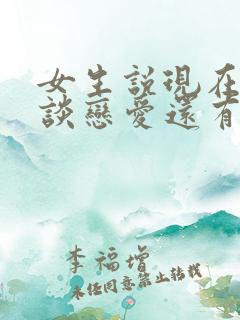 女生説現在
談戀愛還有
李福增
未经同意禁止转载